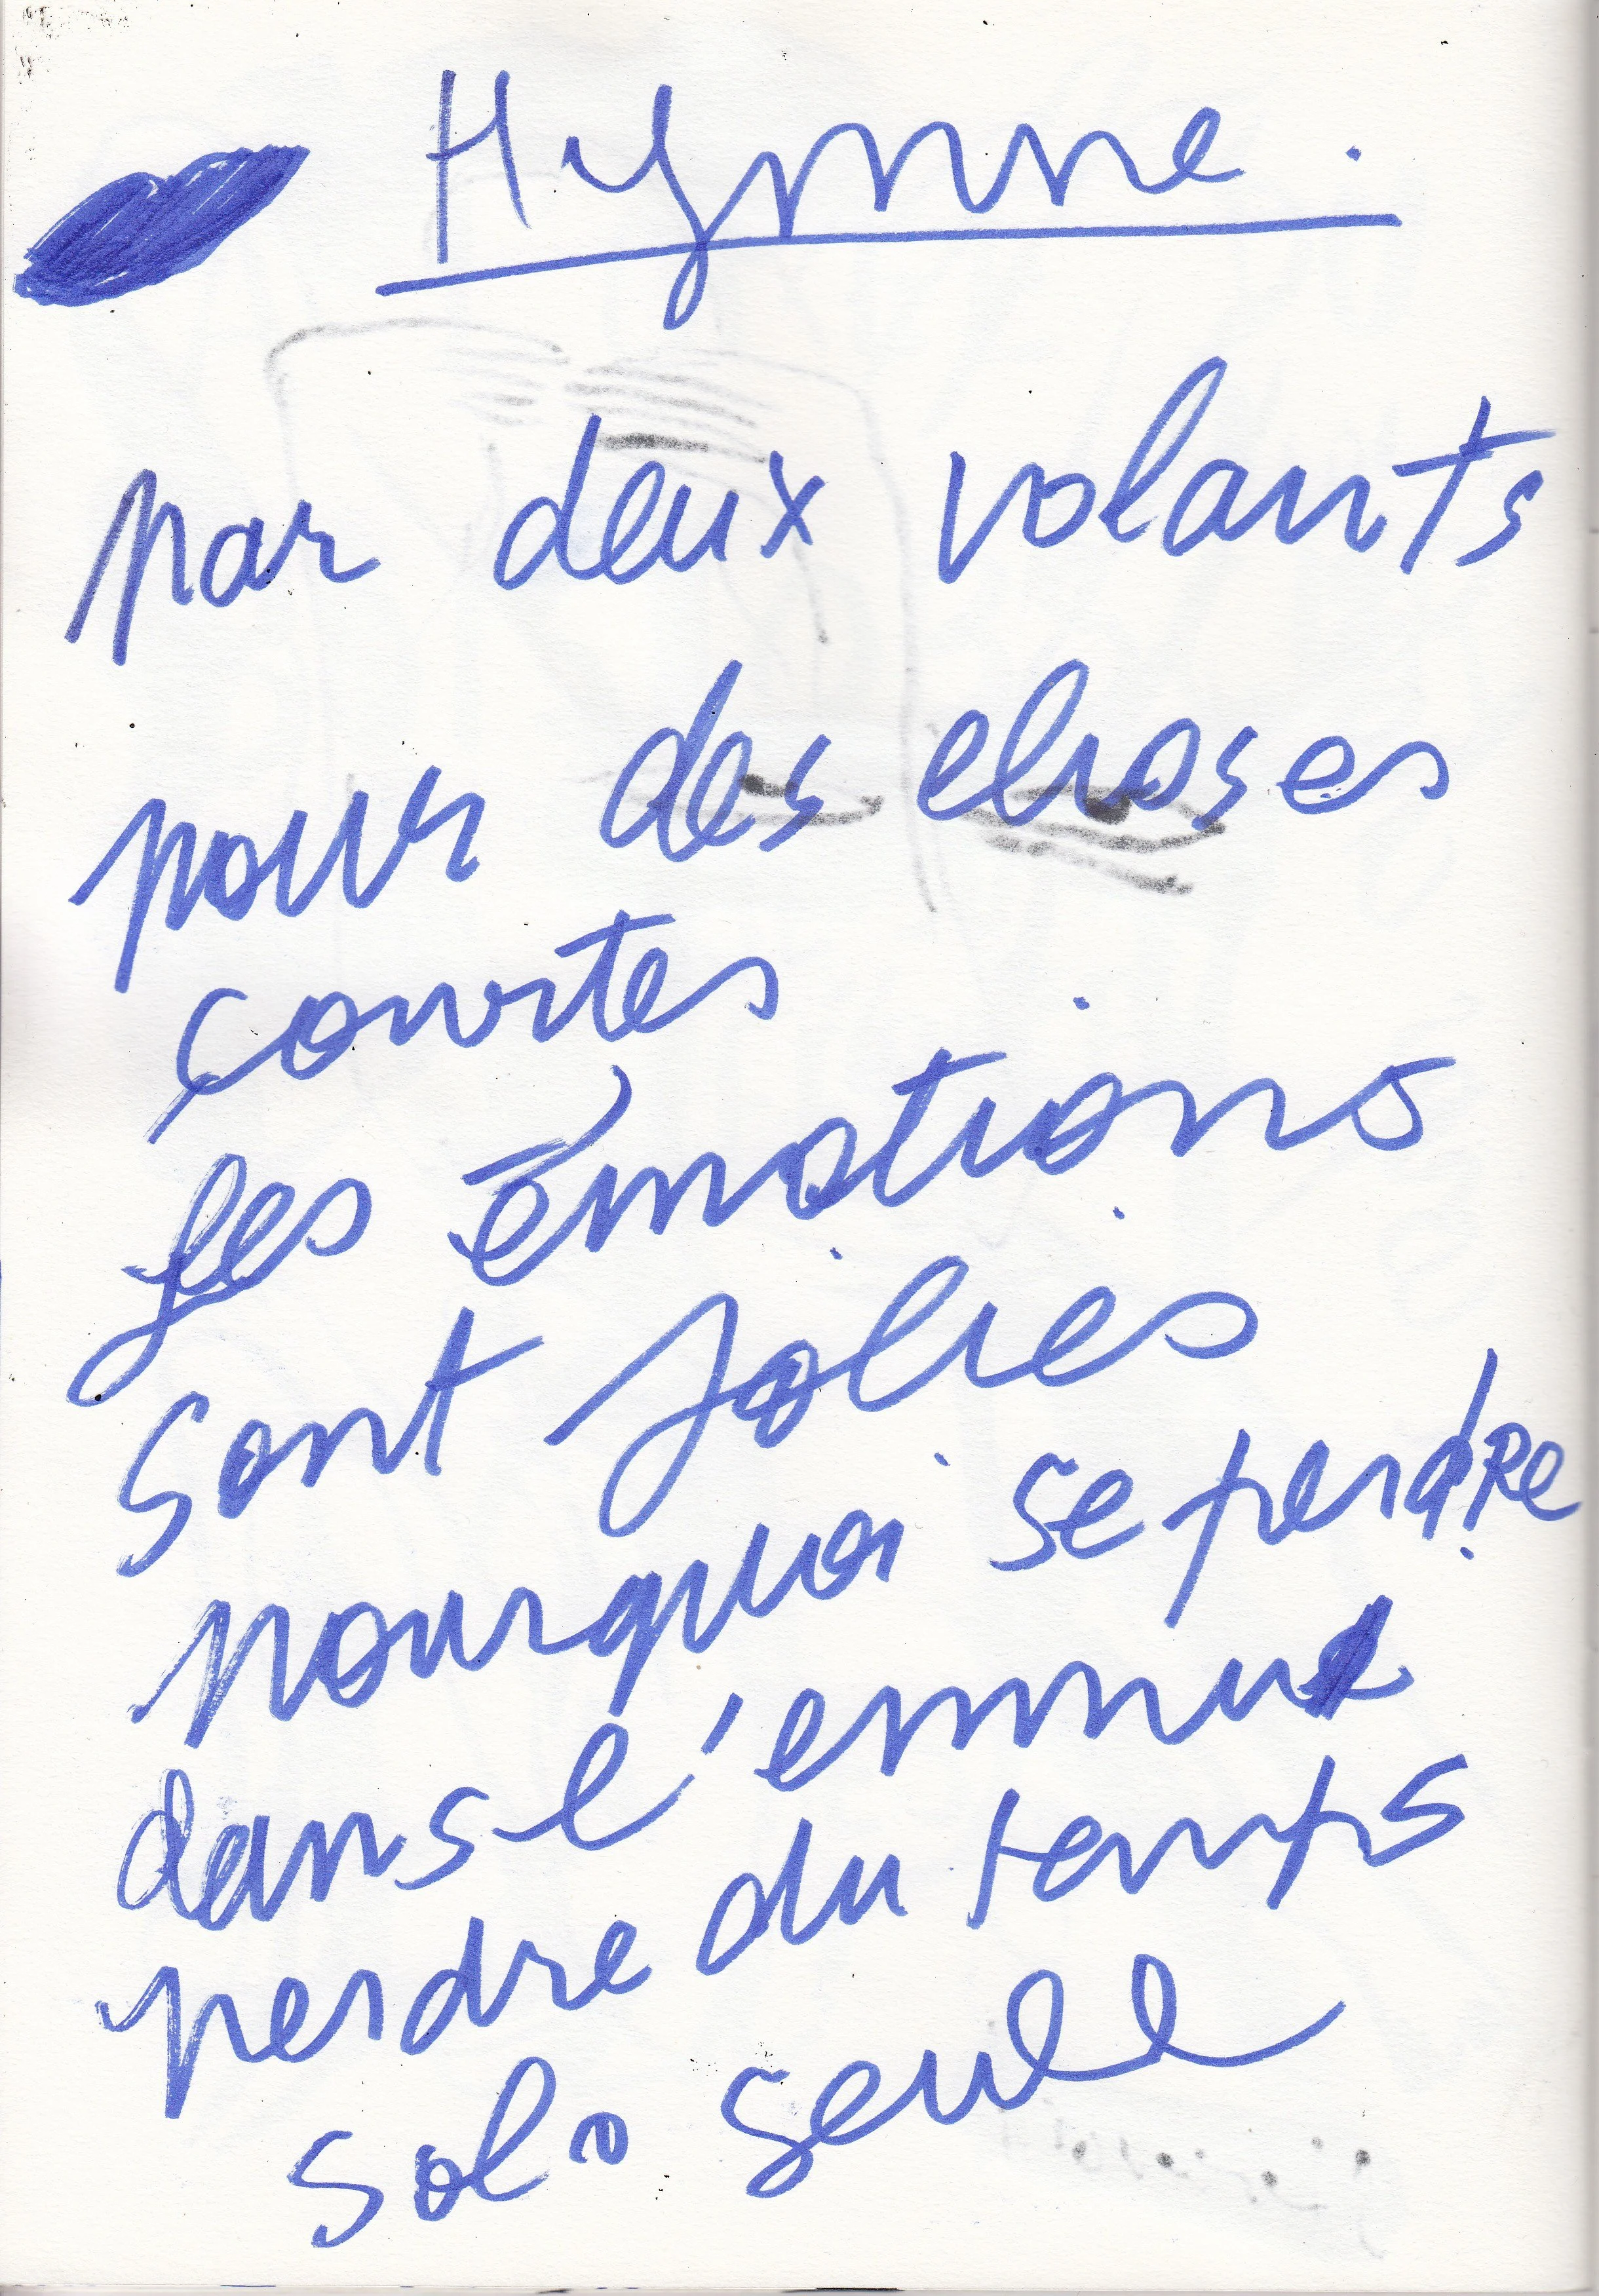 Hymne.
par deux volants
pour des choses
courtes
les émotions
sont jolies
pourquoi se perdre
dans l'ennui
perdre du temps
solo seule